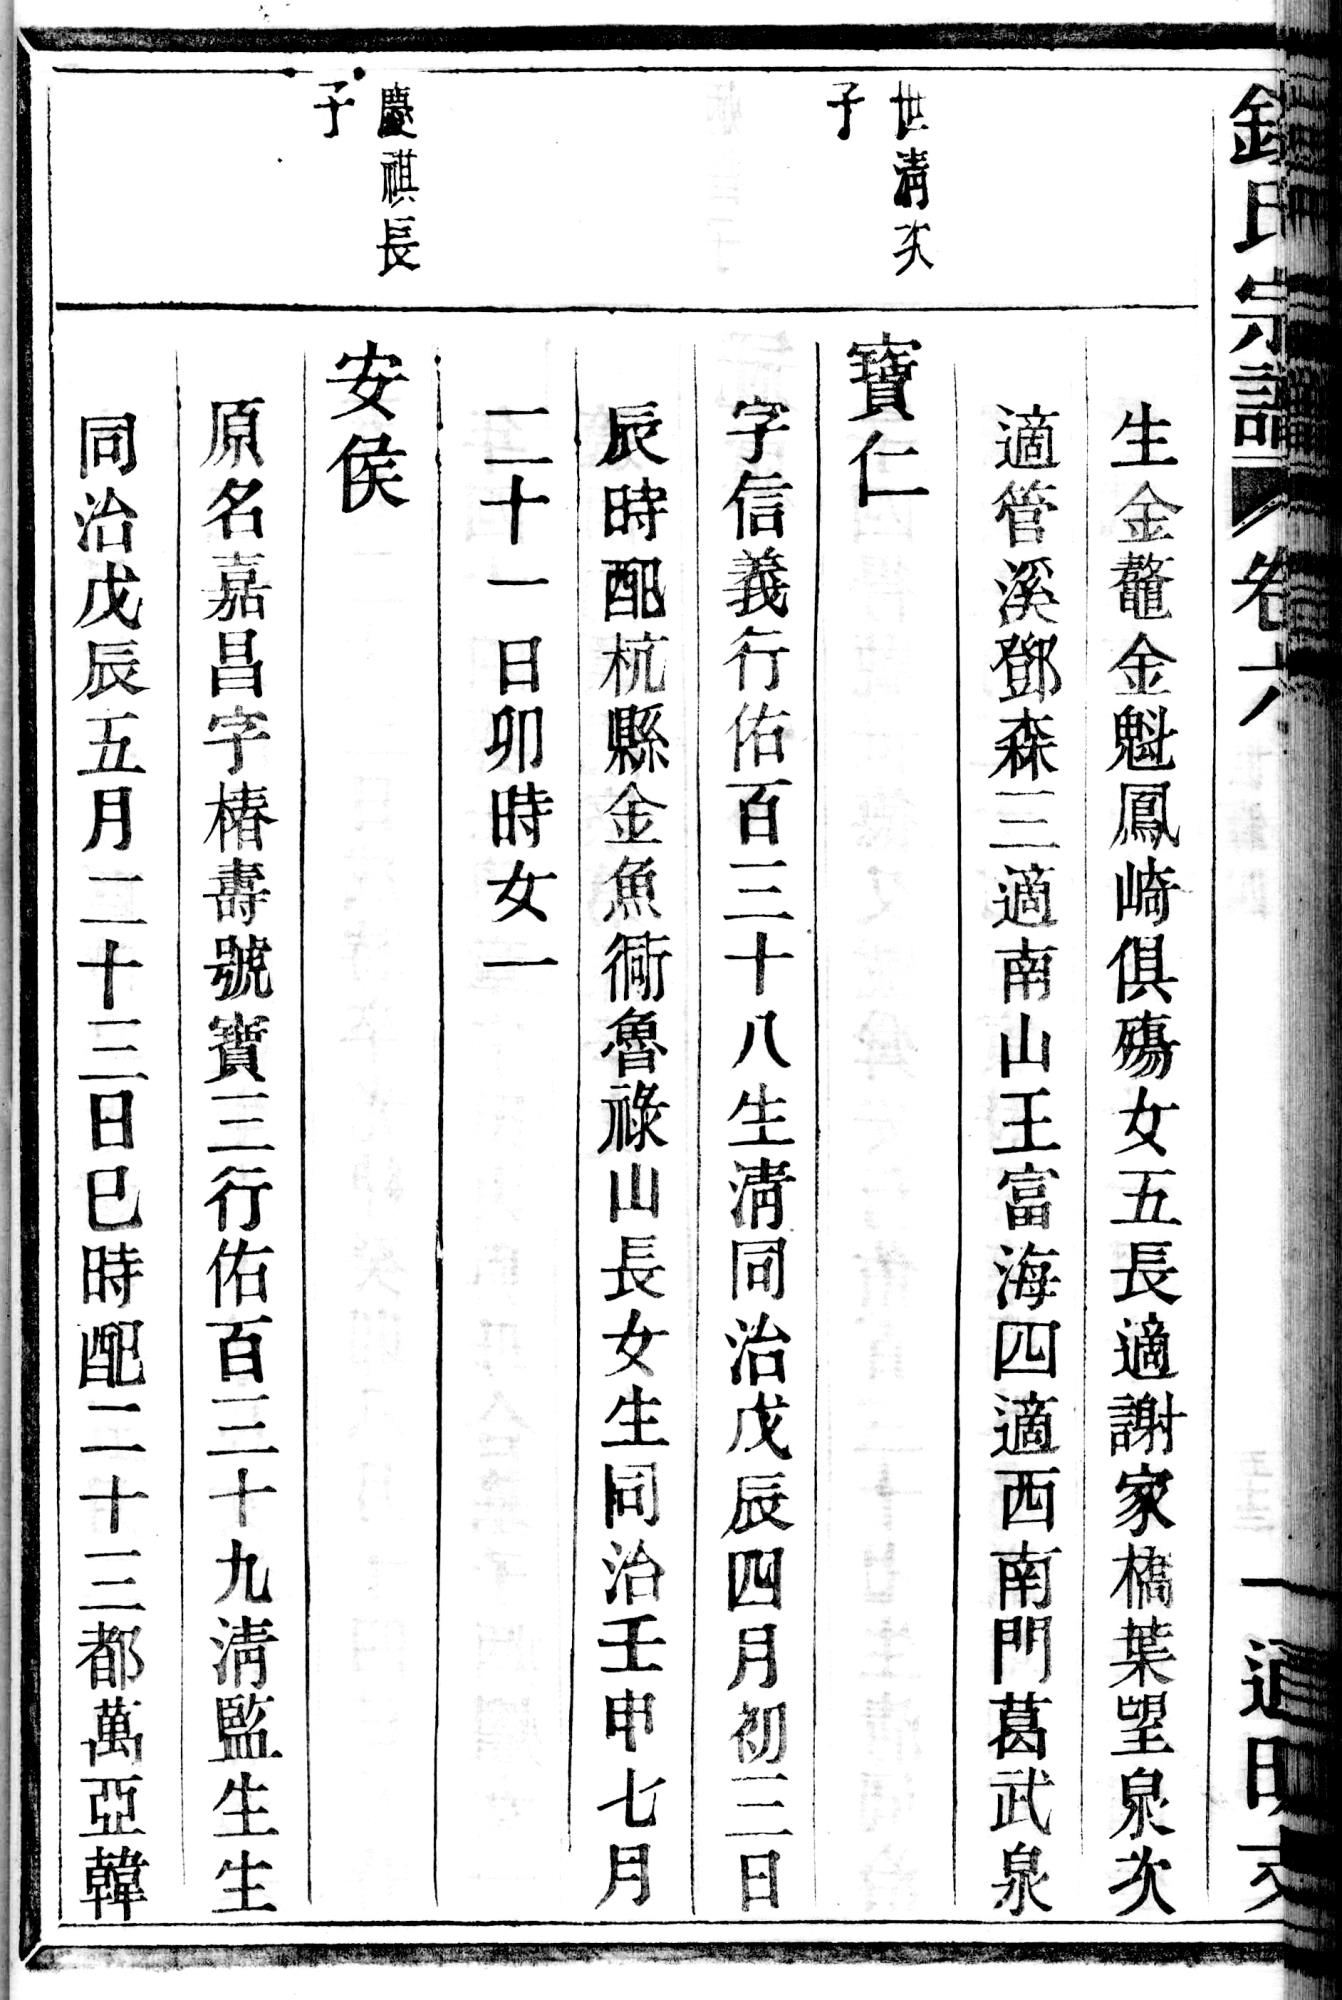 氏宗譜
卷六
生金鼇金魁鳳崎俱殤女五長適謝家橋葉望泉次
適管溪鄧森三適南山王富海四適西南門葛武泉
世清次
子
寶仁
字信義行佑百三十八生清同治戊辰四月初三日
辰時配杭縣金魚衕魯祿山長女生同治壬申七月
二十一日卯時女一
慶祺長
子
安侯
原名嘉昌字椿壽號寶三行佑百三十九清監生生
同治戊辰五月二十三日巳時配二十三都萬亞韓